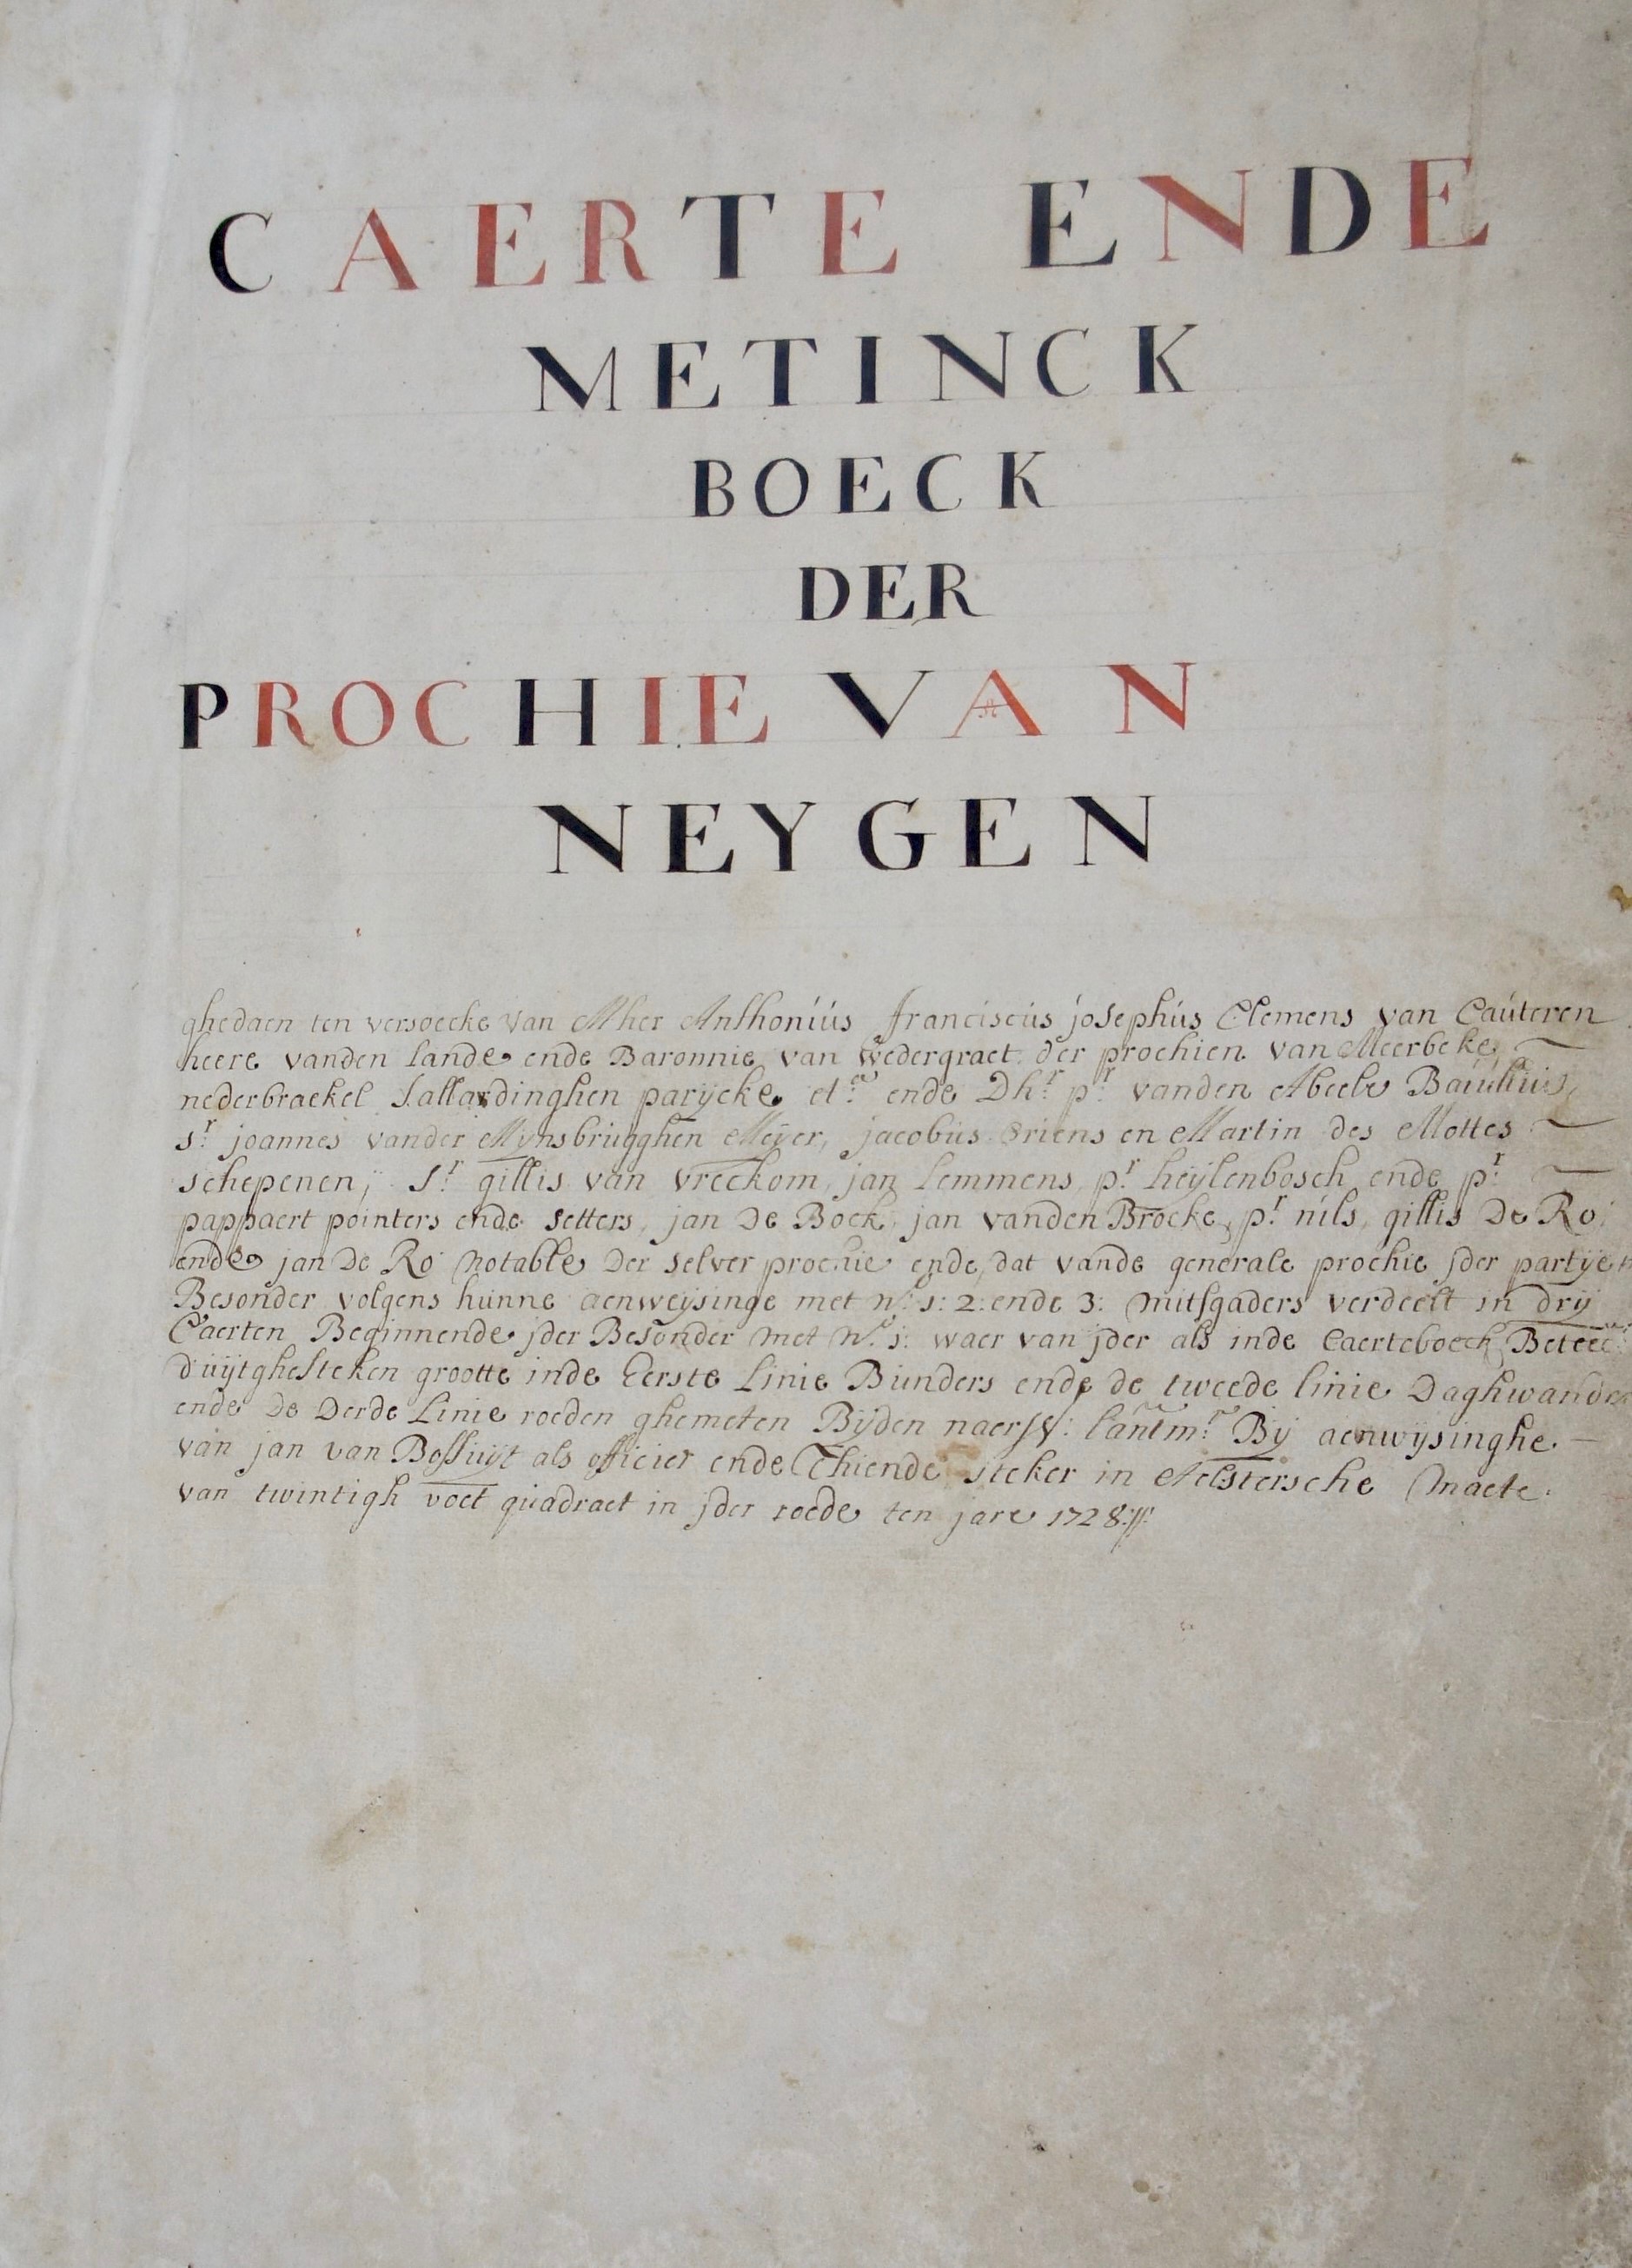 CAERTE ENDE
METINCK
BOECK
DER
PROCHIE VAN
NEYGEN
ghedaen ten versoecke van Mher Anthoniús franciscús josephús Clemens van Caúteren
heere vanden lande ende Baronnie van wedergraet der prochien van Meerbeke
nederbraekel Sallardinghen parijcke etc: ende Dhr: pr: vanden Abeele Baiúlliús,
sr: joannes vander Mijnsbrugghen Meijer, jacobús Sriens en Martin des Mottes
schepenen; Sr: gillis van vreckom, jan lemmens, pr: heijlenbosch ende pr:
pappaert pointers ende setters, jan De Boek, jan vanden Broeke, pr: nils, gillis De Ro
ende jan De Ro notable Der selver prochie ende dat vande generale prochie jder partije
Besonder volgens húnne aenweijsinge met No: 1: 2: ende 3: mitsgaders verdeelt in drij
Caerten Beginnende jder Besonder met No: j: waer van jder als inde Caerteboeck Beteec:
d'úijtghesteken grootte inde Eerste Linie Búnders ende de tweede linie Daghwanden
ende De Derde Linie roeden ghemeten Bijden naersg: lantmr: Bij aenwijsinghe
van jan van Bossúijt als officier ende Thiende steker in Aelstersche Maete
van twintigh voet quadraet in jder roede ten jare 1728: